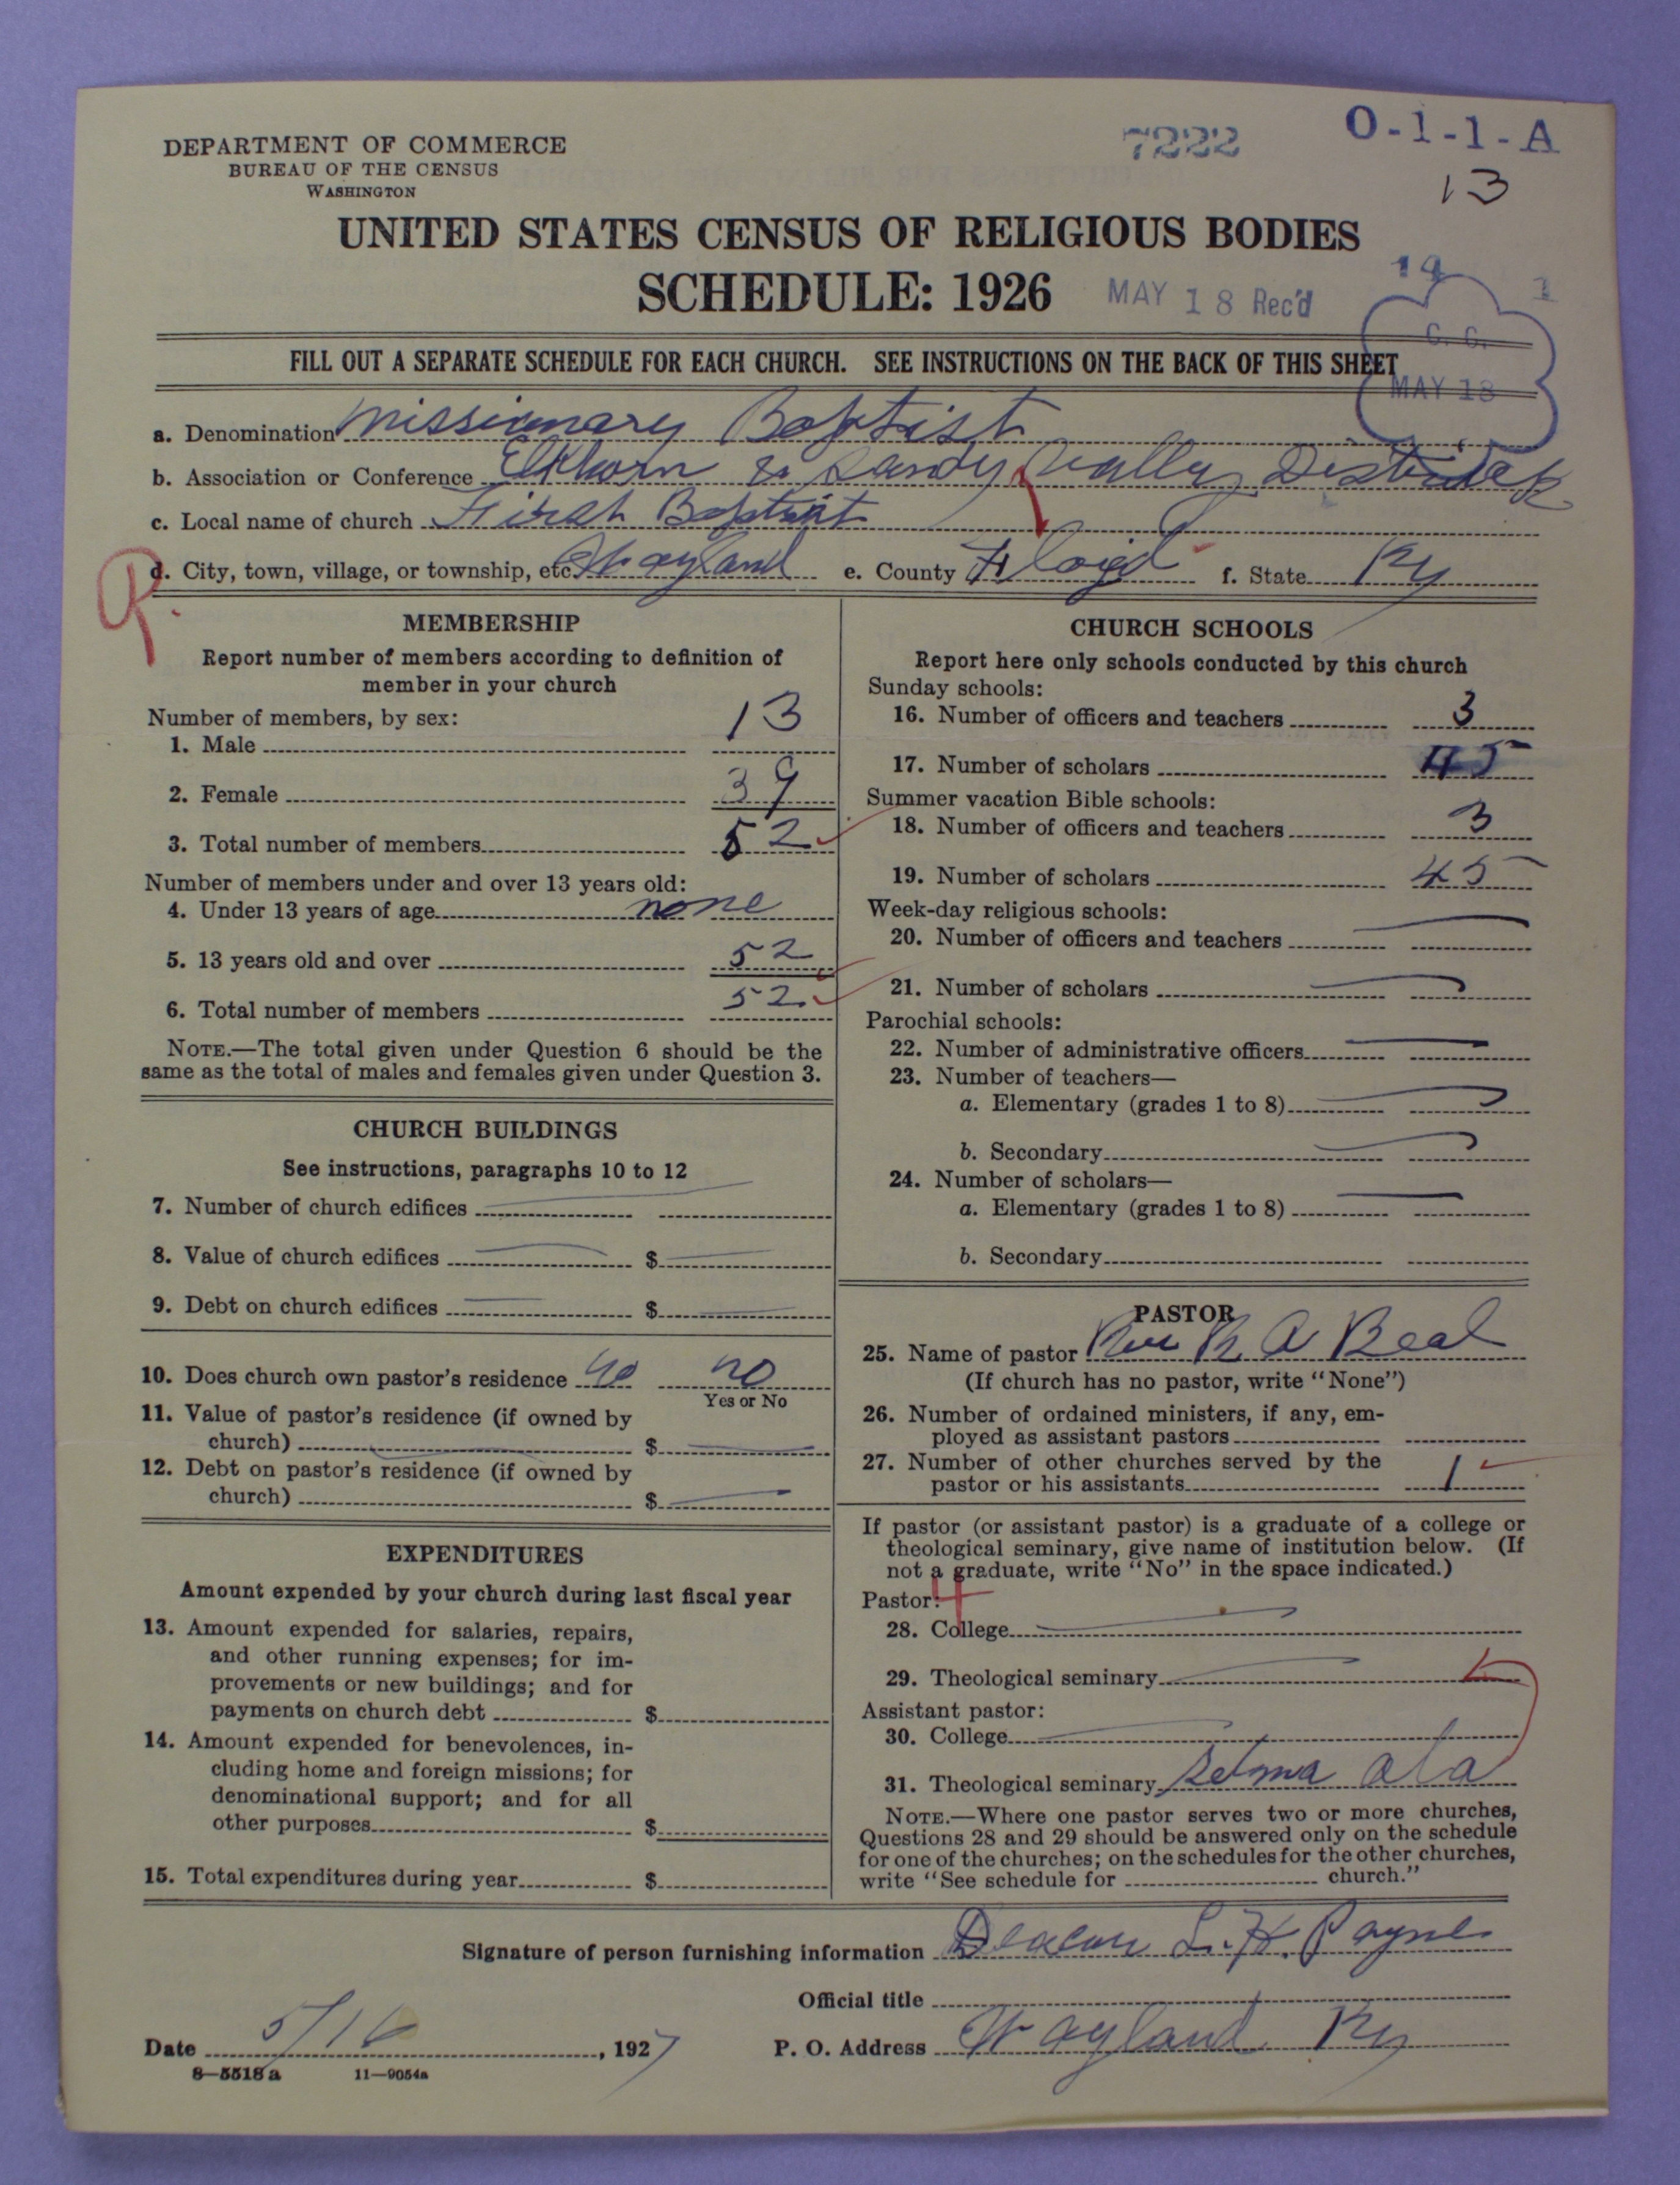 DEPARTMENT OF COMMERCE
BUREAU OF THE CENSUS
WASHINGTON
7222
O-1-1-A
13
UNITED STATES CENSUS OF RELIGIOUS BODIES
SCHEDULE: 1926
MAY 18 Rec'd
19 1
C. G.
MAY 18
FILL OUT A SEPARATE SCHEDULE FOR EACH CHURCH. SEE INSTRUCTIONS ON THE BACK OF THIS SHEET
a. Denomination Missionary Baptist
b. Association or Conference Elkhorn & Sandy Vally District
c. Local name of church First Baptist
d. City, town, village, or township, etc. Wayland e. County Floyd f. State Ky
MEMBERSHIP
Report number of members according to definition of
member in your church
Number of members, by sex:
1. Male 13
2. Female 39
3. Total number of members 52
Number of members under and over 13 years old:
4. Under 13 years of age none
5. 13 years old and over 52
6. Total number of members 52
NOTE.—The total given under Question 6 should be the
same as the total of males and females given under Question 3.
CHURCH BUILDINGS
See instructions, paragraphs 10 to 12
7. Number of church edifices
8. Value of church edifices $
9. Debt on church edifices $
10. Does church own pastor's residence no no
Yes or No
11. Value of pastor's residence (if owned by
church) $
12. Debt on pastor's residence (if owned by
church) $
EXPENDITURES
Amount expended by your church during last fiscal year
13. Amount expended for salaries, repairs,
and other running expenses; for im-
provements or new buildings; and for
payments on church debt $
14. Amount expended for benevolences, in-
cluding home and foreign missions; for
denominational support; and for all
other purposes $
15. Total expenditures during year $
CHURCH SCHOOLS
Report here only schools conducted by this church
Sunday schools:
16. Number of officers and teachers 3
17. Number of scholars 45
Summer vacation Bible schools:
18. Number of officers and teachers 3
19. Number of scholars 45
Week-day religious schools:
20. Number of officers and teachers
21. Number of scholars
Parochial schools:
22. Number of administrative officers
23. Number of teachers—
a. Elementary (grades 1 to 8)
b. Secondary
24. Number of scholars—
a. Elementary (grades 1 to 8)
b. Secondary
PASTOR
25. Name of pastor Rev R A Beal
(If church has no pastor, write "None")
26. Number of ordained ministers, if any, em-
ployed as assistant pastors
27. Number of other churches served by the
pastor or his assistants 1
If pastor (or assistant pastor) is a graduate of a college or
theological seminary, give name of institution below. (If
not a graduate, write "No" in the space indicated.)
Pastor: 4
28. College
29. Theological seminary
Assistant pastor:
30. College
31. Theological seminary Selma Ala
NOTE.—Where one pastor serves two or more churches,
Questions 28 and 29 should be answered only on the schedule
for one of the churches; on the schedules for the other churches,
write "See schedule for church."
Signature of person furnishing information Deacon L. H. Payne
Official title
Date 5/16, 1927 P. O. Address Wayland Ky
8—5518 a 11—9054a